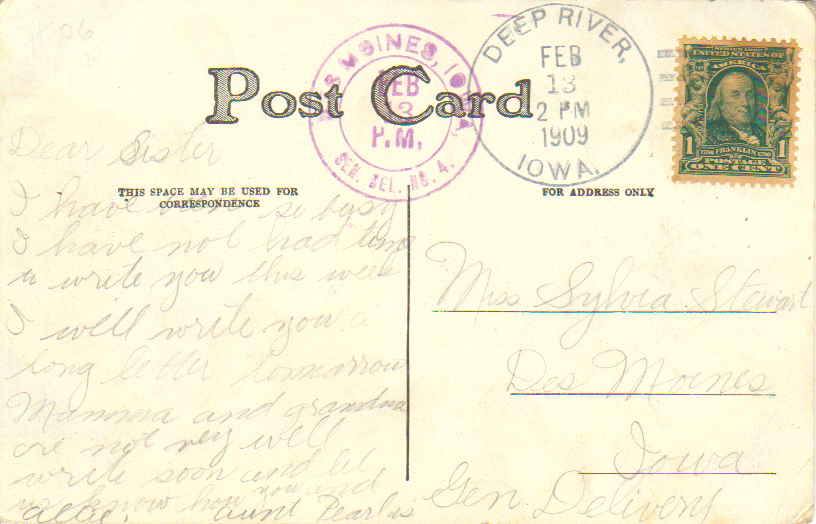 Post Card
DES MOINES, IOWA.
FEB
13
P.M.
GEN. DEL. NO. 4.
DEEP RIVER,
FEB
13
2 PM
1909
IOWA.
SERIES 1902
UNITED STATES OF
AMERICA
1 1
FRANKLIN
POSTAGE
ONE CENT
THIS SPACE MAY BE USED FOR
CORRESPONDENCE
FOR ADDRESS ONLY
Dear Sister
I have been so busy
I have not had time
to write you this week
I will write you a
long letter tomorrow
Mamma and grandma
are not very well
write soon and let
us know how you and
aunt Pearl is
Miss Sylvia Stewart
Des Moines
Iowa
Gen. Delivery